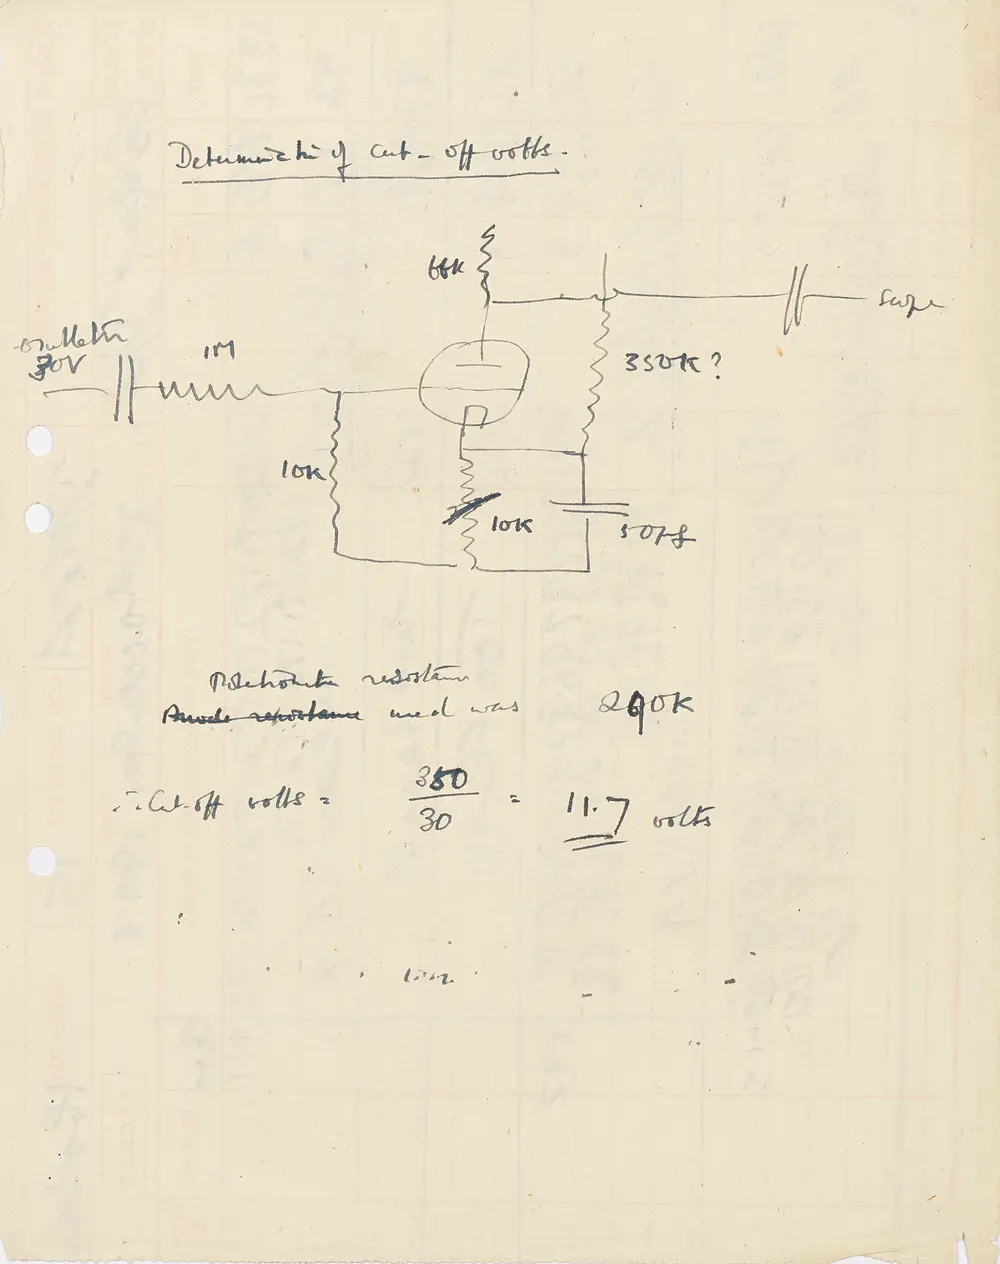 Determination of cut-off volts.
66K
scope
oscillator
30V
1M
350K?
10K
10K
50μf
Potentiometer resistance
Anode resistance used was 290K
∴ Cut-off volts = 350/30 = 11.7 volts